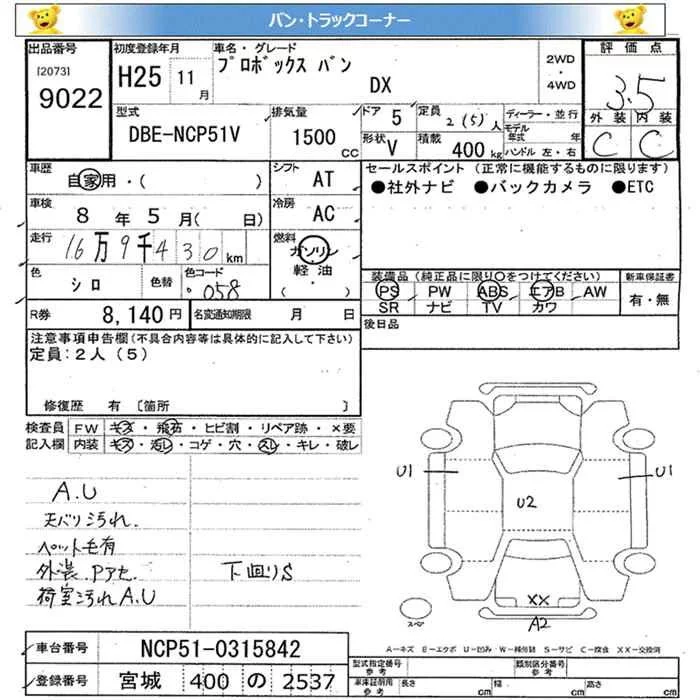 バン・トラックコーナー
出品番号
[2073]
9022
初度登録年月
H25 11月
車名・グレード
プロボックス バン
DX
2WD
・
4WD
評価点
3.5
外装 内装
C C
型式
DBE-NCP51V
排気量
1500
CC
ドア 5
形状 V
定員 2(5)人
積載 400 kg
ディーラー・並行
モデル年式 年
ハンドル 左・右
車歴
自家用・( )
シフト AT
車検
8年 5月( 日)
冷房 AC
走行
16万9千430km
燃料
ガソリン
軽油
・
( )
色
シロ
色替
色コード
058
R券 8,140円
名変通知期限 月 日
セールスポイント (正常に機能するものに限ります)
●社外ナビ ●バックカメラ ●ETC
装備品(純正品に限り○をつけてください)
PS PW ABS エアB AW
SR ナビ TV カワ
新車保証書
有・無
後日品
注意事項申告欄(不具合内容等は具体的に記入して下さい)
定員:2人(5)
修復歴 有 〔箇所 〕
検査員記入欄
FW キズ・飛石・ヒビ割・リペア跡・×要
内装 キズ・汚れ・コゲ・穴・スレ・キレ・破レ
A.U
天バリ汚れ.
ペット毛有
外装.Pアセ.
荷室汚れA.U
下廻りS
U1
U1
U2
XX
A2
スペア
A-キズ E-エクボ U-凹み W-補修跡 S-サビ C-腐食 XX-交換済
車台番号 NCP51-0315842
登録番号 宮城 400 の 2537
型式指定番号
参考
類別区分番号
参考
車庫証明用
参考
長さ cm 幅 cm 高さ cm